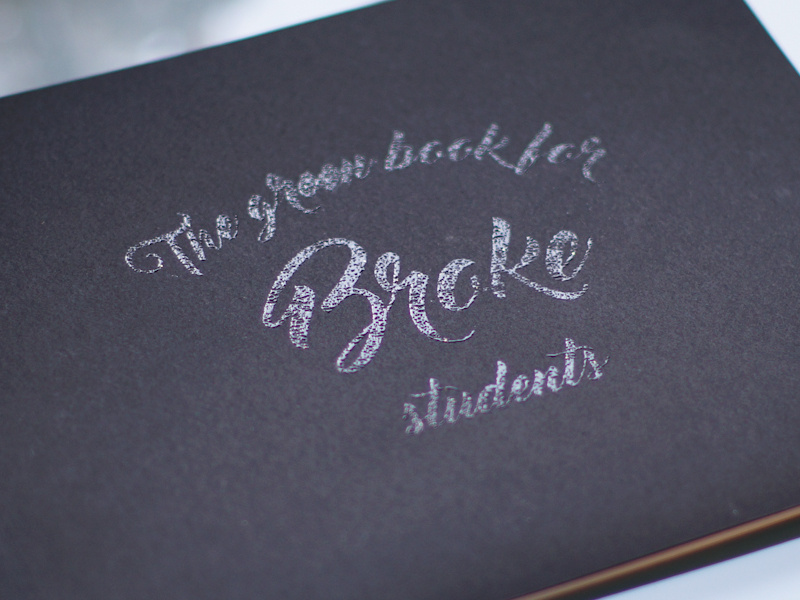 The green book for
Broke
students